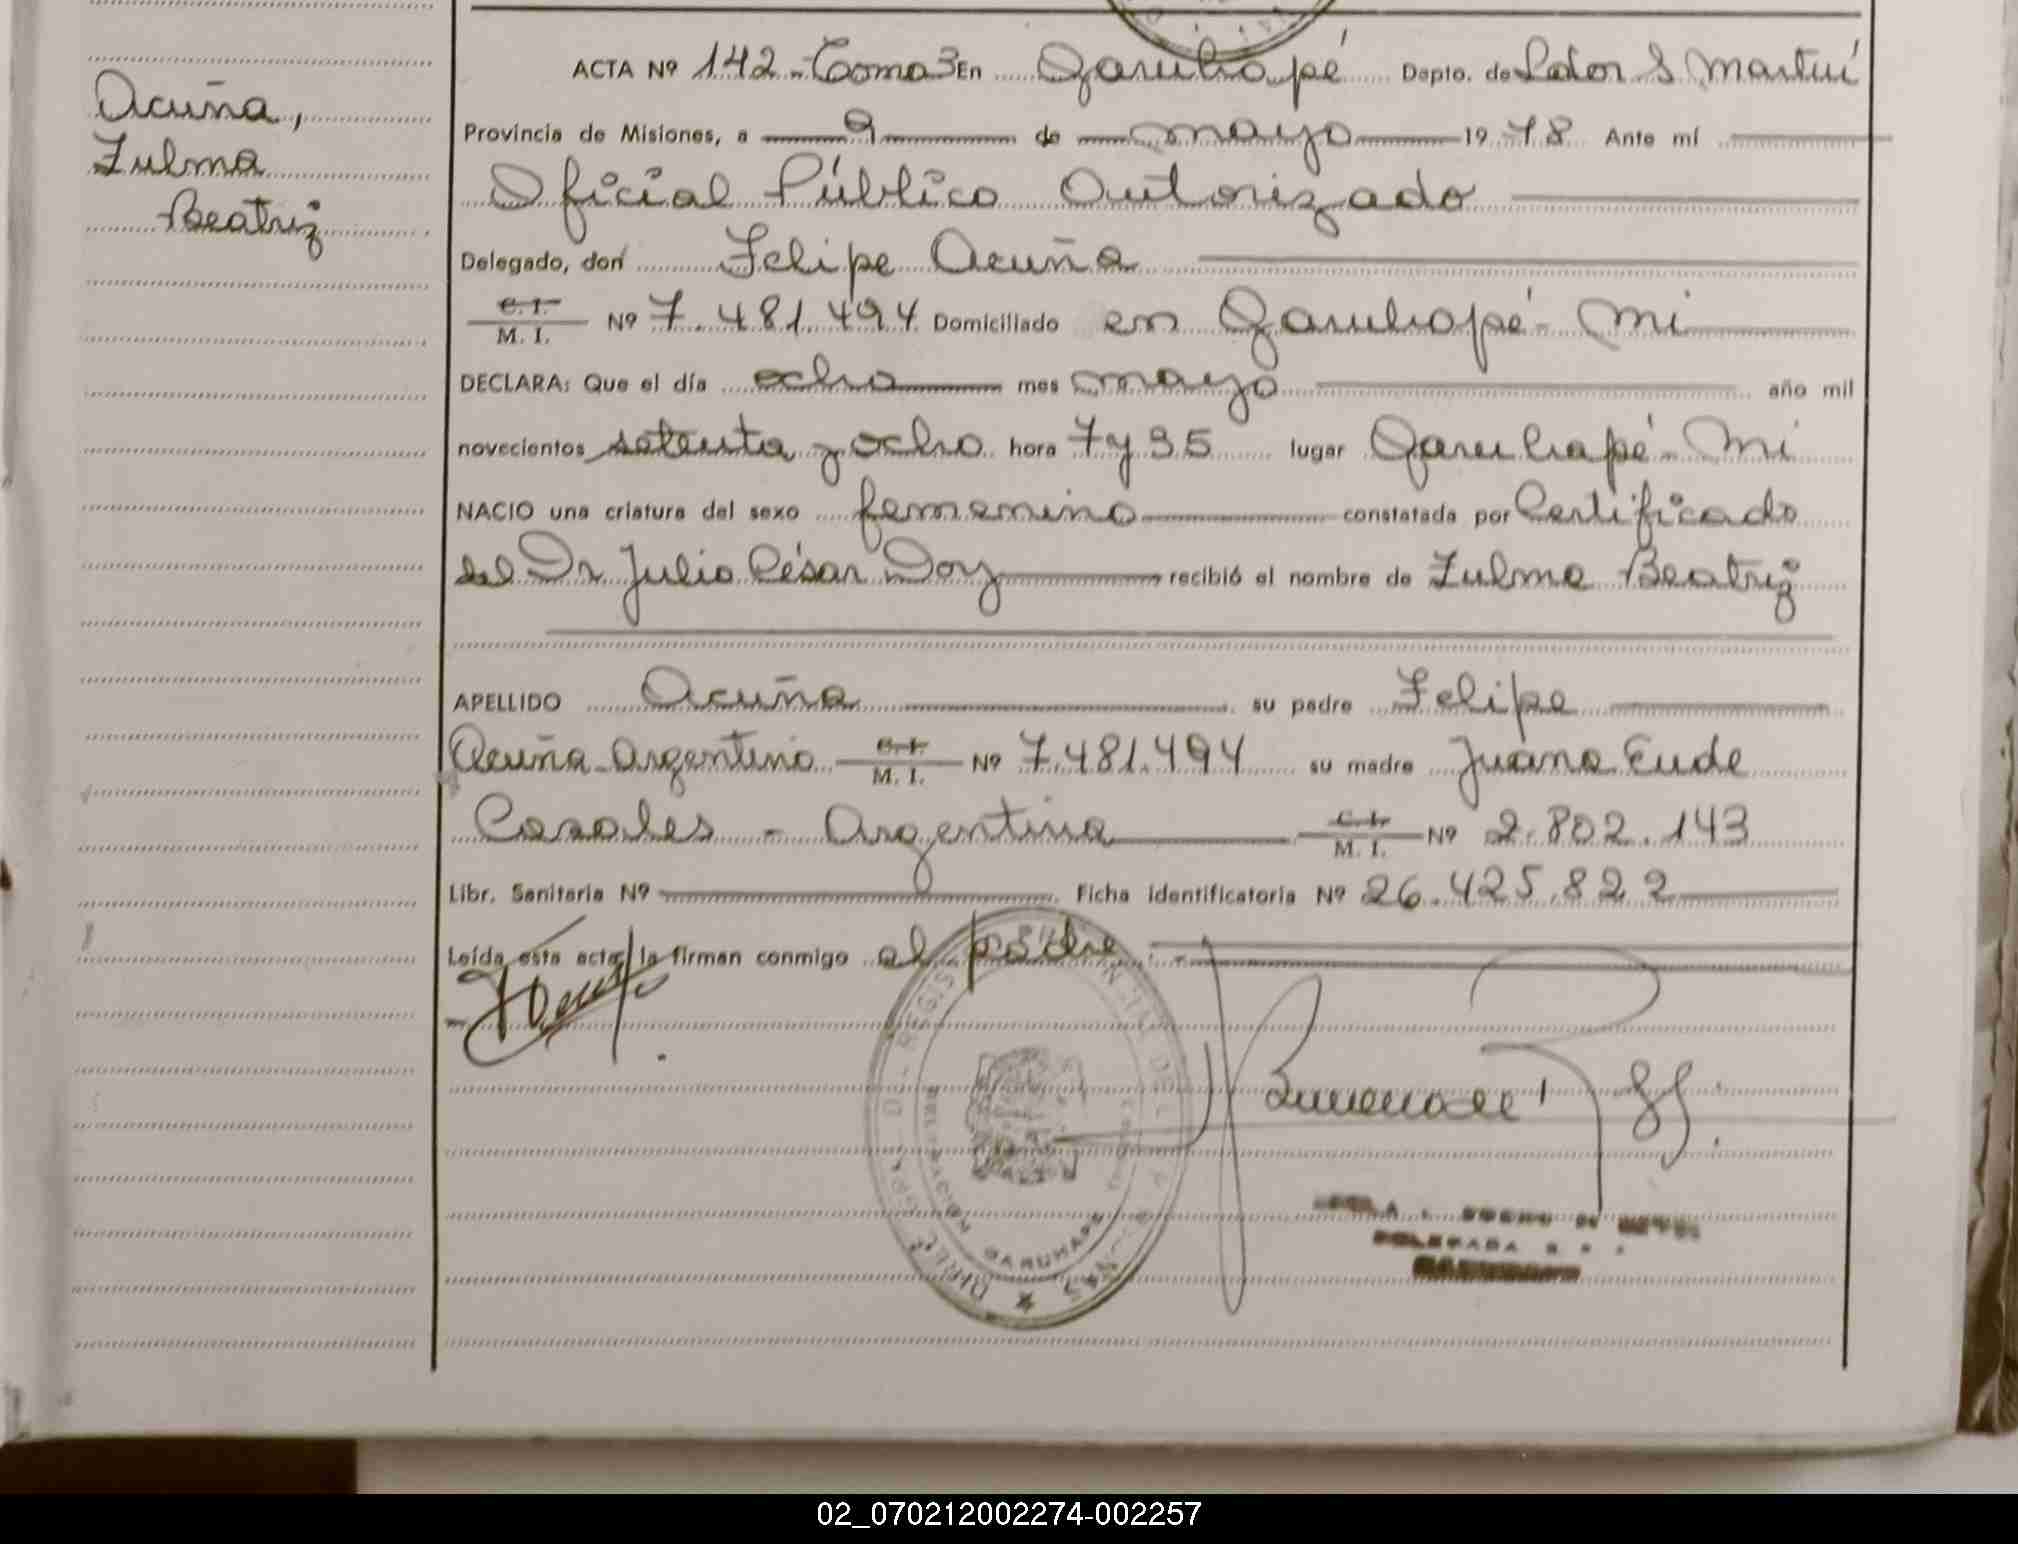 Acuña,
Zulma
Beatriz
ACTA Nº 142 - Tomo 3 En Garuhapé Depto. de Ldor S Martín
Provincia de Misiones, a 9 de mayo 1978 Ante mí
Oficial Público Autorizado
Delegado, don Felipe Acuña
C. I. / M. I. Nº 7.481.494 Domiciliado en Garuhapé - Mi
DECLARA: Que el día ocho mes mayo año mil
novecientos setenta y ocho hora 7 y 35 lugar Garuhapé - Mi
NACIO una criatura del sexo femenino constatada por Certificado
del Dr Julio César Doy recibió el nombre de Zulma Beatriz
APELLIDO Acuña su padre Felipe
Acuña - Argentino C. I. / M. I. Nº 7.481.494 su madre Juana Eude
Casales - Argentina C. I. / M. I. Nº 2.802.143
Libr. Sanitaria Nº Ficha identificatoria Nº 26.425.822
Leída esta acta, la firman conmigo el padre. -
DELEGACION GARUHAPE
02_070212002274-002257